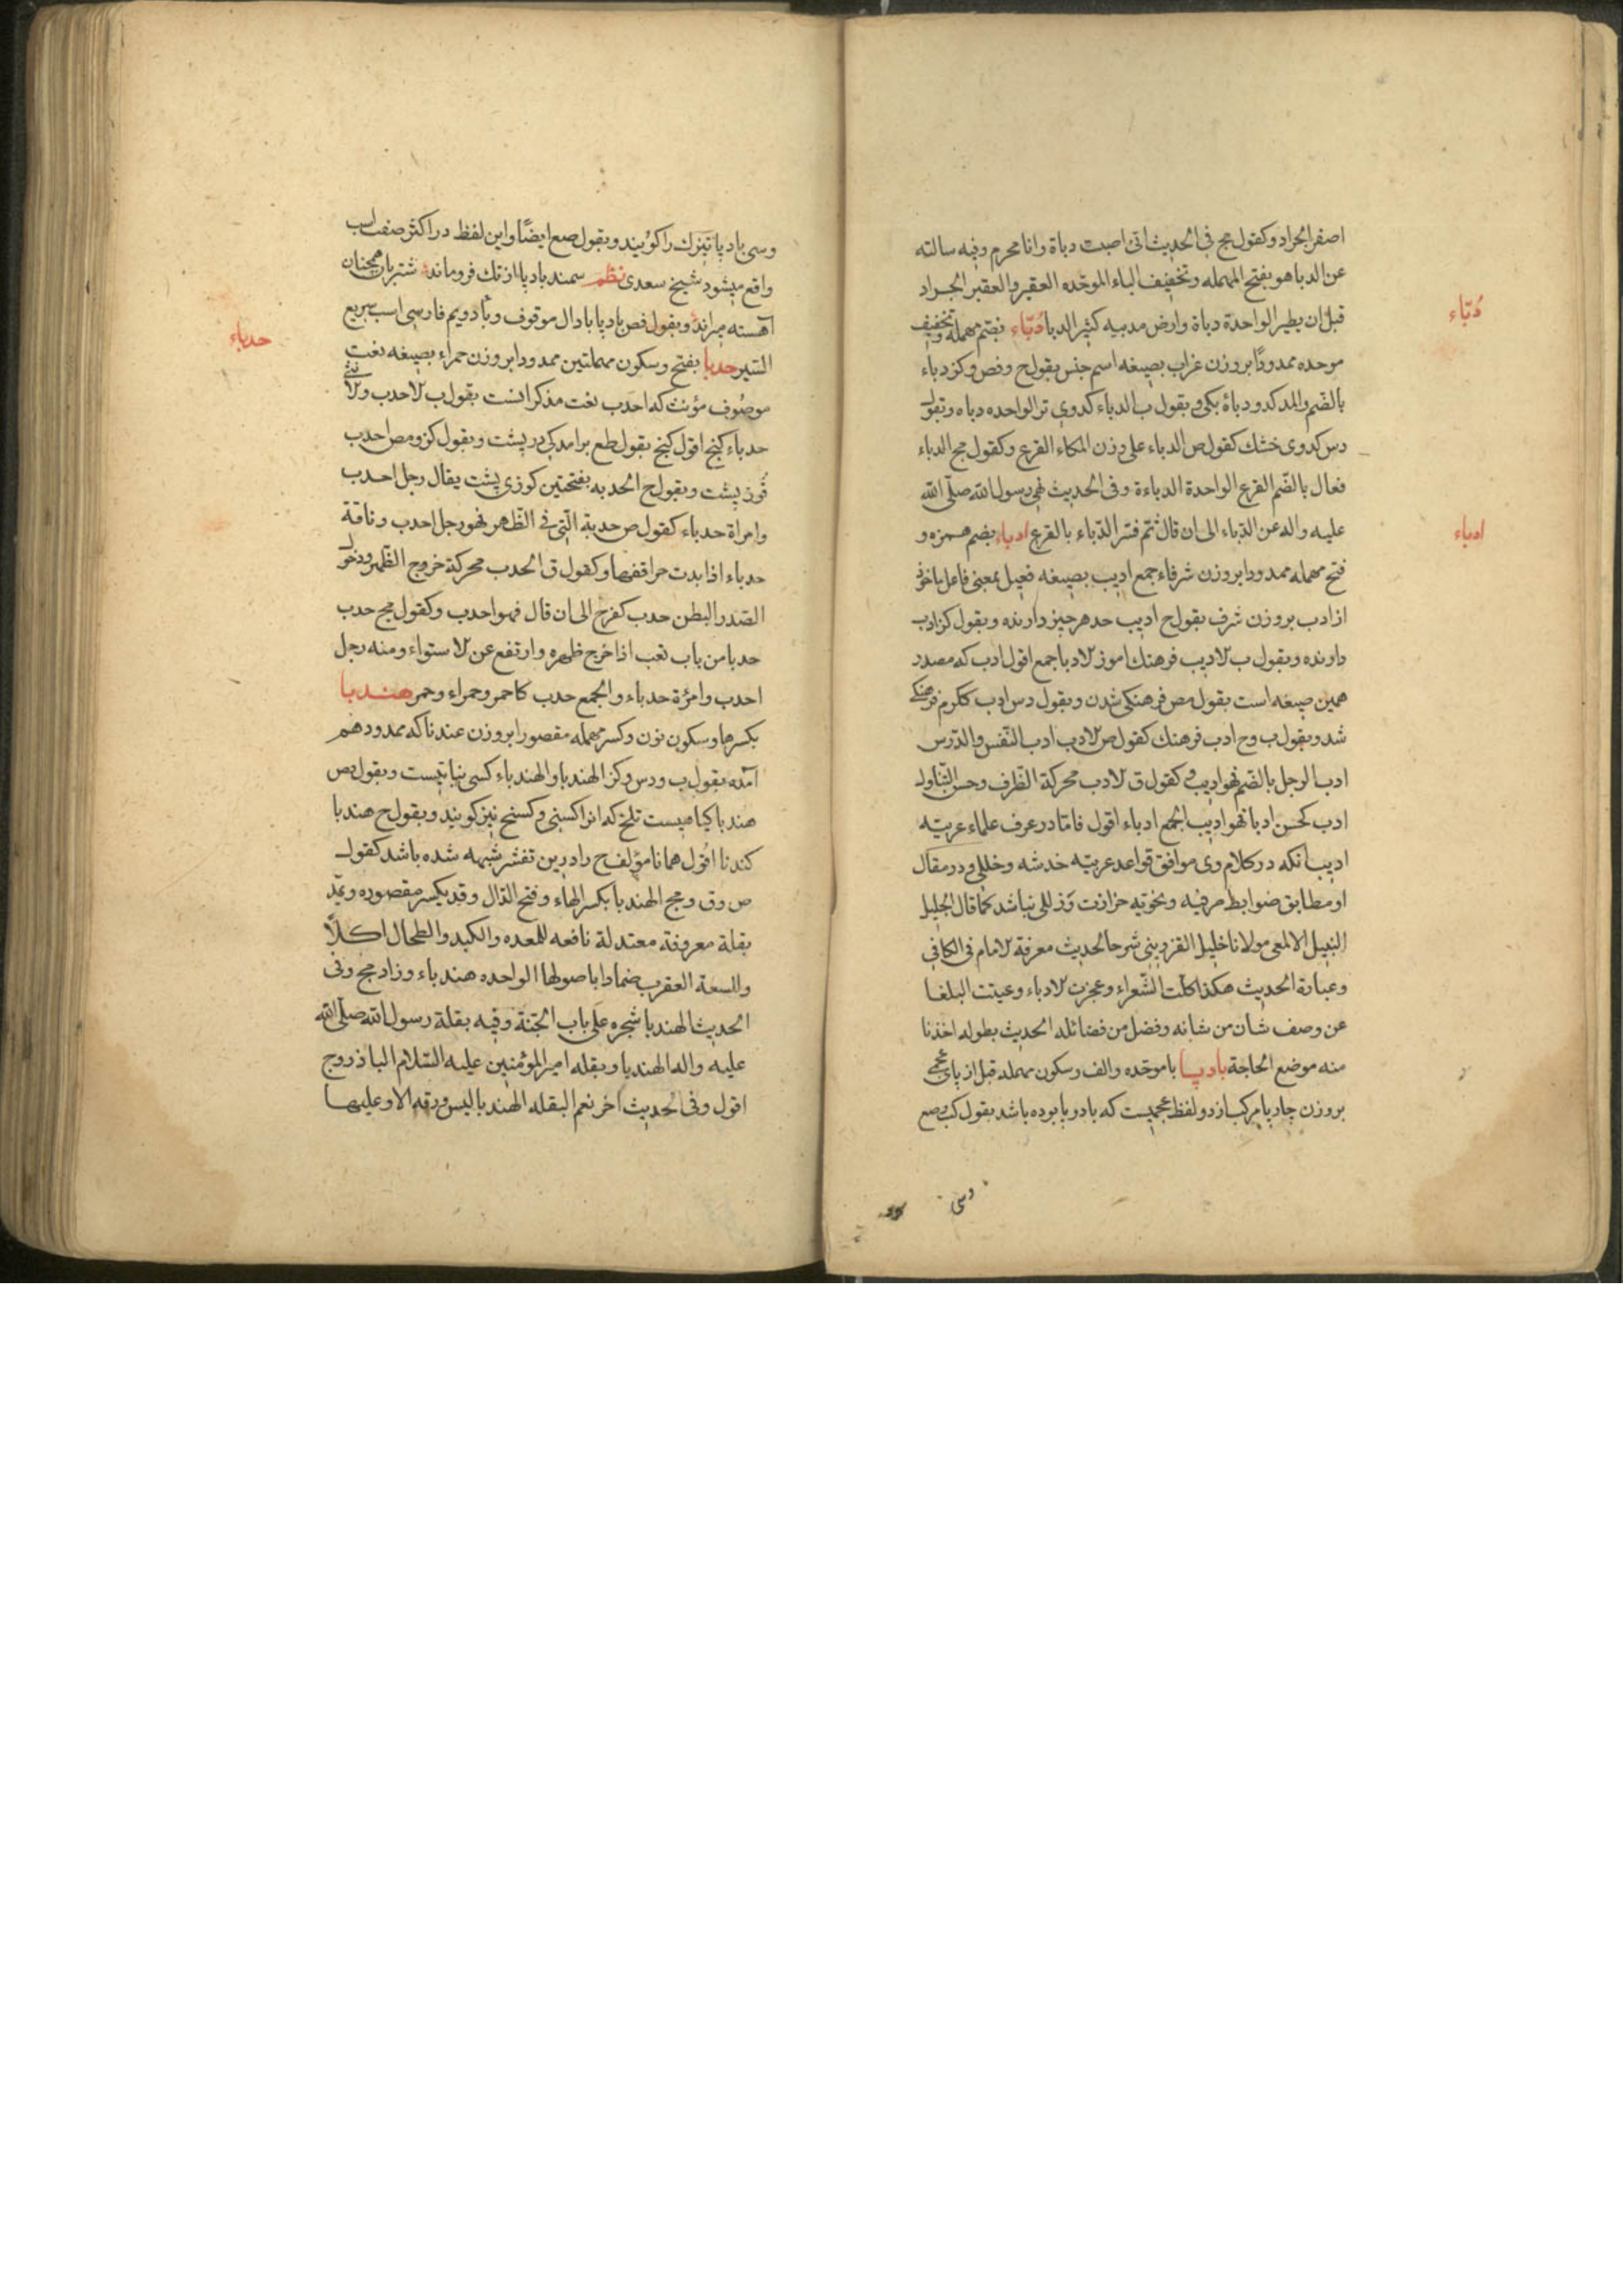 اصفر الجراد و کقول مج فی الحدیث انی اصبت دباة وانا محرم وفیه سالته
عن الدبا هو بفتح المهمله وتخفیف الباء الموحّده العقیر والعقیر الجراد
قبل ان یطیر الواحدة دباة وارض مدبیه کثیر الدبا دُبّاء بضم مهمله وتخفیف
موحده ممدودًا بروزن غراب بصیغه اسم جنس بقول ح وفص وکز دباء
بالضّم والمد کدو دباة یکی وبقول ب الدباء کدوی تر الواحده دباه وبقول
دس کدوی خشک کقول ص الدباء علی وزن المکاء القرع وکقول مج الدباء
فعال بالضّم القرع الواحدة الدباءة وفی الحدیث نهی رسول الله صلّی الله
علیه واله عن الدّباء الی ان قال ثم فسّر الدّباء بالقرع ادباء بضم همزه و
فتح مهمله ممدودا بروزن شرفاء جمع ادیب بصیغه فعیل بمعنی فاعل ماخوذ
از ادب بروزن شرف بقول ح ادیب حد هر چیز دارنده وبقول کز ادب
دارنده وبقول ب الادیب فرهنک اموز الادبا جمع اقول ادب که مصدر
همین صیغه است بقول مص فرهنکی شدن وبقول دس ادب ککرم فرهنکی
شد وبقول ب وح ادب فرهنک کقول ص الادب ادب النّفس والدّرس
ادب الرجل بالضم فهو ادیب و کقول ق الادب محرکة الظّرف وحسن التّناول
ادب کحسن ادبا فهو ادیب الجمع ادباء اقول فامّا در عرف علماء عربیّه
ادیب انکه در کلام وی موافق قواعد عربیّه خدشه وخللی ودر مقال
او مطابق ضوابط صرفیه ونحوّیه حزازت وزللی نباشد کما قال الجلیل
النبیل الالمعی مولانا خلیل القزوینی شرحا لحدیث معرفة الامام فی الکافی
وعبارة الحدیث هکذا کلّت الشّعراء وعجزت الادباء وعیّت البلغا
عن وصف شان من شانه وفضل من فضائله الحدیث بطوله اخذنا
منه موضع الحاجة بادپا با موحّده والف وسکون مهمله قبل از پای عجمی
بروزن چارپا مرکب از دو لفظ عجمیست که باد وپا بوده باشد بقول ک وصع
وسی
دُبّاء
ادباء
وسی بادپا تیزتک را کویند وبقول صع ایضًا واین لفظ در اکثر صفت اسب
واقع میشود شیخ سعدی نظم سمند بادپا از تک فروماند شتربان همچنان
آهسته میراند وبقول فص بادپا با دال موقوف وبا دویم فارسی اسب سریع
السّیر حدبا بفتح وسکون مهملتین ممدودا بروزن حمراء بصیغه نعت
موصوف مؤنث که احدب نعت مذکر انست بقول ب الاحدب والانثی
حدباء کنج اقول کنج بقول طع برامدکی در پشت وبقول کز ومص احدب
قُوز پشت وبقول ح الحدبه بفتحتین کوزی پشت یقال رجل احدب
وامراة حدباء کقول ص حدبة الّتی فی الظّهر فهو رجل احدب وناقة
حدباء اذا بدت حراقفها وکقول ق الحدب محرکة خروج الظّهر ودخول
الصّدر والبطن حدب کفرح الی ان قال فهو احدب وکقول مج حدب
حدبا من باب تعب اذا خرج ظهره وارتفع عن الاستواء ومنه رجل
احدب وامرءة حدباء والجمع حدب کاحمر وحمراء وحمر هندبا
بکسر ها وسکون نون وکسر مهمله مقصورا بروزن عندنا که ممدود هم
آمده بقول ب ودس وکز الهندبا والهندباء کسنی نباتیست وبقول مص
هندبا کیاهیست تلخ که انرا کسنی وکسنج نیز کویند وبقول ح هندبا
کندنا اقول همانا مؤلف ح را درین تفسیر شبهه شده باشد کقول
ص وق ومج الهندبا بکسر الهاء وفتح الدّال وقد یکسر مقصوره ویمّد
بقلة معروفة معتدلة نافعه للمعده والکبد والطحال اکلاً
وللسعة العقرب ضمادا باصولها الواحده هندباء وزاد مج وفی
الحدیث الهندبا شجره علی باب الجنّة وفیه بقلة رسول الله صلّی الله
علیه واله الهندبا وبقله امیر المؤمنین علیه السّلام الباذروج
اقول وفی الحدیث اخر نعم البقله الهندبا لیس ورقه الا وعلیها
حدباء